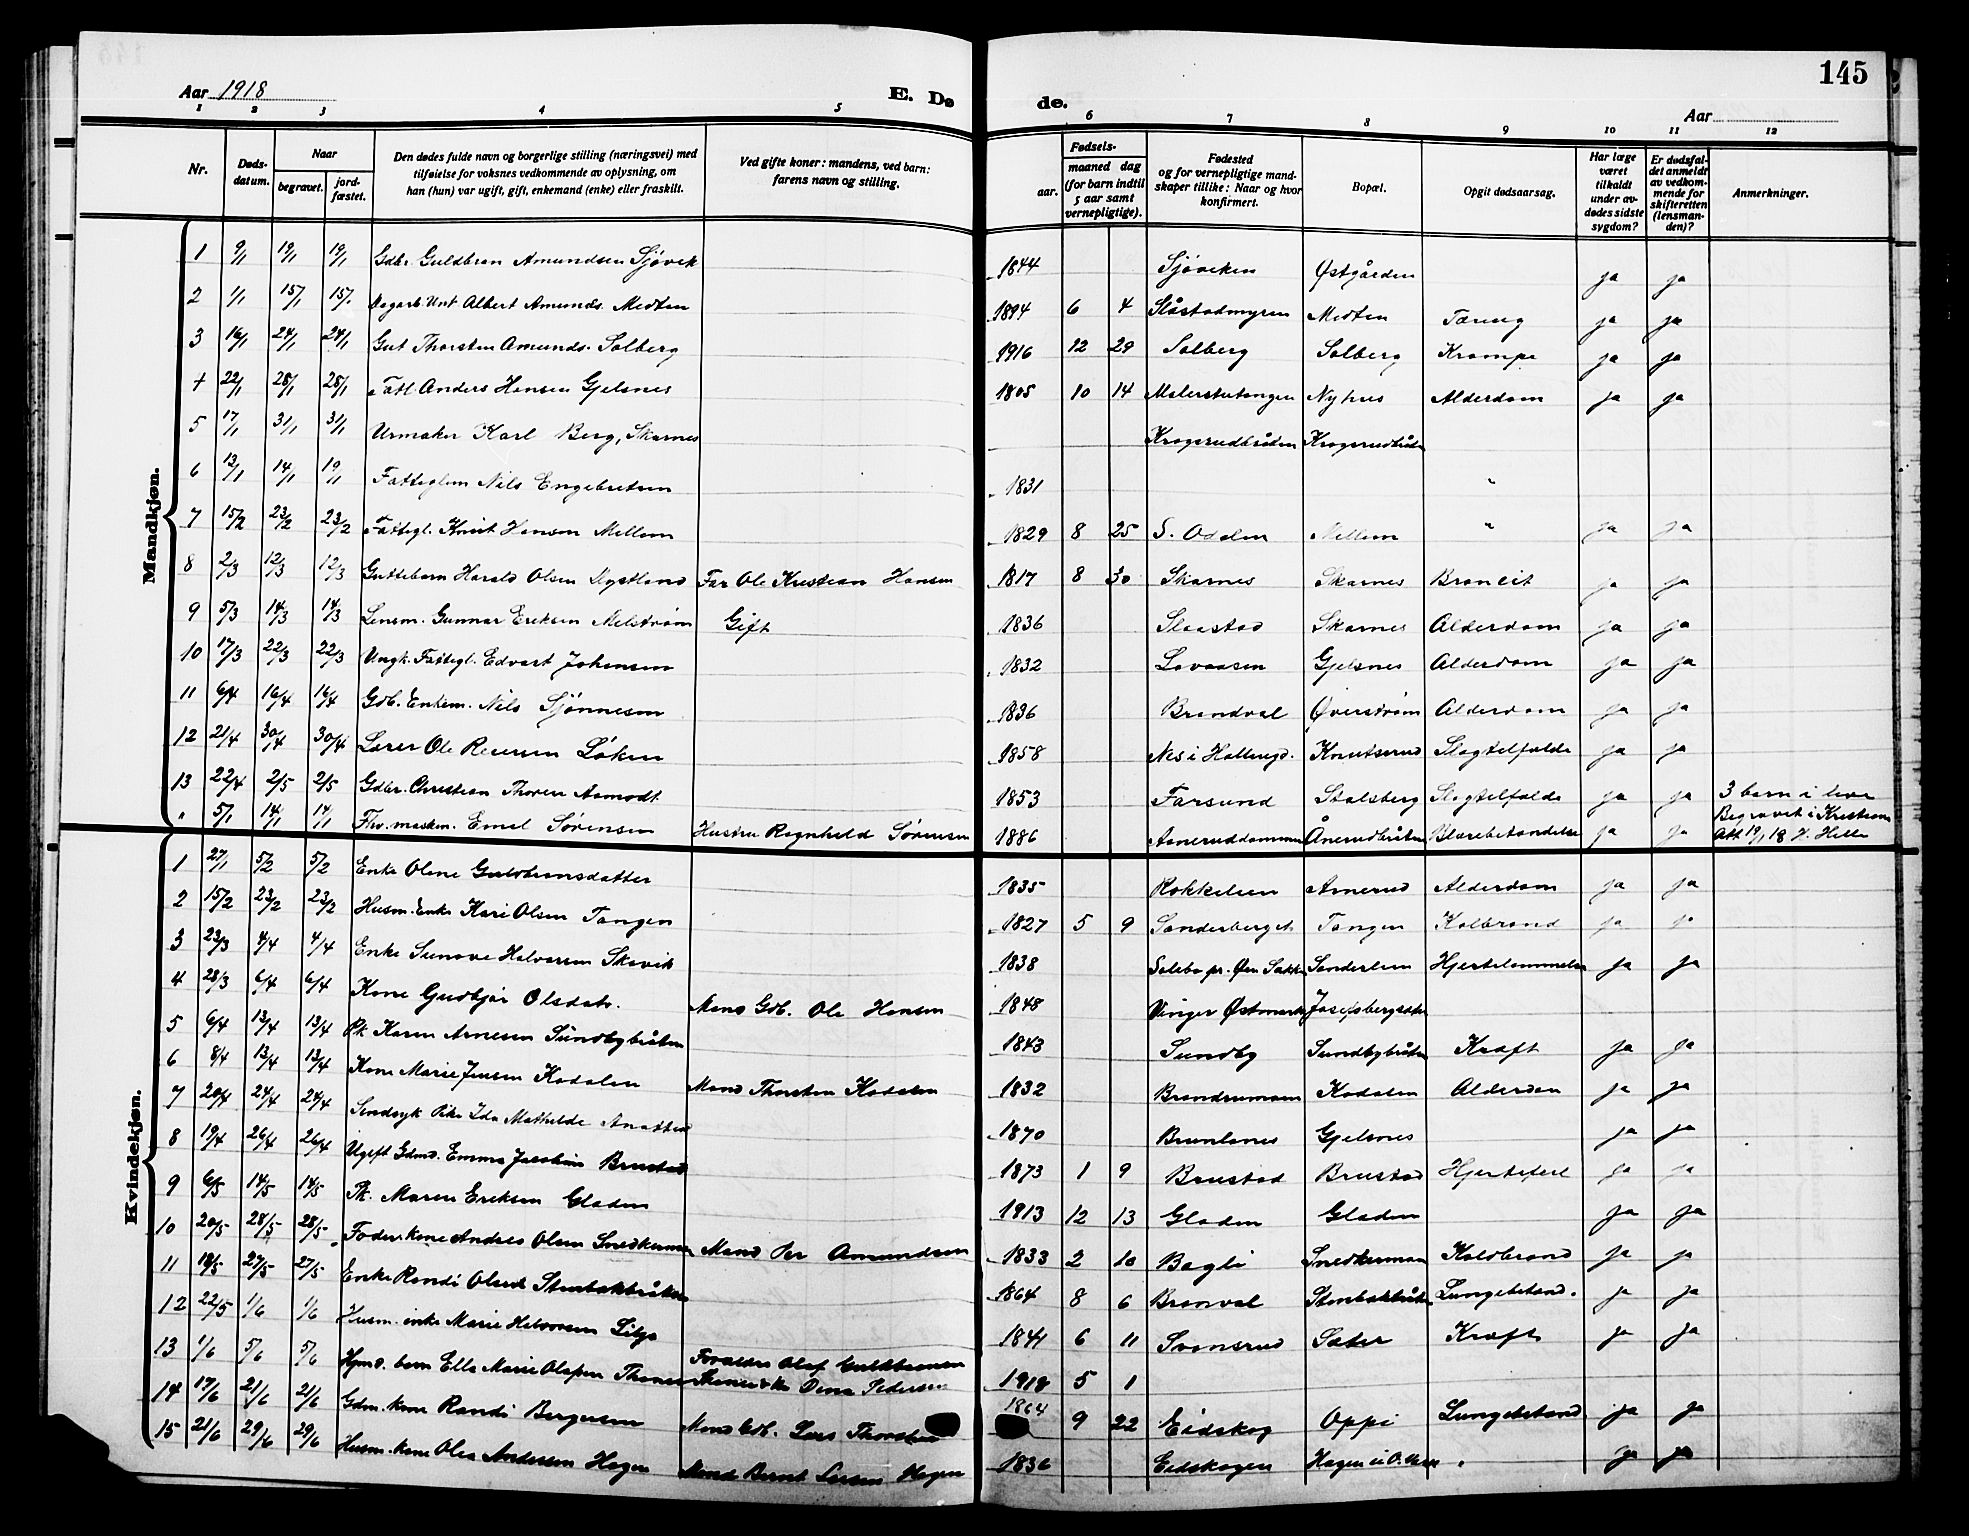 145
Aar 1918
E. Dø de.
Aar
1 2 3 4 5 6 7 8 9 10 11 12
Nr.
Dødsdatum.
Naar
begravet.
jordfæstet.
Den dødes fulde navn og borgerlige stilling (næringsvei) med
tilføielse for voksnes vedkommende av oplysning, om
han (hun) var ugift, gift, enkemand (enke) eller fraskilt.
Ved gifte koner: mandens, ved barn:
farens navn og stilling.
Fødsels-
aar.
maaned dag
(for barn indtil
5 aar samt
vernepligtige).
Fødested
og for vernepligtige mand-
skaper tillike: Naar og hvor
konfirmert.
Bopæl.
Opgit dødsaarsag.
Har læge
været
tilkaldt
under av-
dødes sidste
sygdom?
Er dødsfal-
det anmeldt
av vedkom-
mende for
skifteretten
(lensman-
den)?
Anmerkninger.
Mandkjøn.
1 9/1 19/1 19/1 Gdbr. Guldbran Amundsen Sjøvik 1844 Sjøviken Østgården ja ja
2 1/1 15/1 15/1 Albert Amunds. Medten 1894 6 4 Slåstadmyren Medten Tæring ja ja
3 16/1 24/1 24/1 Gut Thorsten Amunds. Solberg 1916 12 29 Solberg Solberg Krampe ja ja
4 22/1 28/1 28/1 Fatt. Anders Hansen Gjelsnes 1805 10 14 Nyhus Alderdom ja ja
5 17/1 31/1 31/1 Urmaker Karl Berg, Skarnes Krogsrudbråten Krogsrudbråten
6 13/1 14/1 19/1 Fatteglem Nils Engebretsen 1831 "
7 15/2 23/2 23/2 Fattegl. Knut Hansen Mellem 1829 8 25 S. Odalen Mellem " ja ja
8 2/3 12/3 12/3 Guttebarn Harald Olsen Far Ole Kristian Hansen 1817 8 30 Skarnes Skarnes Broncit ja ja
9 5/3 14/3 14/3 Lensm. Gunnar Eriksen Melstrøm Gift 1836 Slaastad Skarnes Alderdom ja ja
10 17/3 22/3 22/3 Ungk. Fattegl. Edvart Johansen 1832 Lovaasen Gjelsnes Alderdom ja ja
11 6/4 16/4 16/4 Gdb. Enkem. Nils Sjønnesen 1836 Brandval Øverstrøm Alderdom ja ja
12 21/4 30/4 30/4 Lærer Ole Reiersen Løken 1858 Nes i Hallingd. Knutserud Slagtilfælde ja ja
13 22/4 2/5 2/5 Gdbr. Christian Thoresen Aamodt 1853 Farsund Stalsberg Slagtilfælde ja ja 3 barn i live
" 5/1 14/1 14/1 Emil Sørensen Hustru Ragnhild Sørensen 1886 Aaneruddammen Ånerudbråten Blærebetændelse ja ja Begravet i Kristiania
Att 19/1 18 H. Hille
Kvindekjøn.
1 27/1 5/2 5/2 Enke Oline Guldbransdatter 1835 Rokkelien Arnerud Alderdom ja ja
2 15/2 23/2 23/2 Husm. Enke Kari Olsen Tangen 1827 5 9 Sanderberget Tangen Kolbrand ja ja
3 23/3 4/4 4/4 Enke Sunove Halvorsen Skavik 1838 Sanderlien Hjertelammelse ja ja
4 28/3 6/4 6/4 Kone Gudbjør Olsdatr. Mand Gdb. Ole Hansen 1848 Vinger Østmark
5 6/4 13/4 13/4 Pk. Karen Arnesen Sundbybråten 1843 Sundby Sundbybråten Kræft ja ja
6 8/4 13/4 13/4 Kone Marie Jensen Kodalen Mand Thorsten Kodalen 1832 Kodalen Alderdom ja ja
7 20/4 24/4 24/4 Sindsyk Pike Ida Mathilde 1870 Brunlanes Gjelsnes ja ja
8 19/4 26/4 26/4 Ugift Gdmd. Emma Jacobine Brustad 1873 1 9 Brustad Brustad Hjertefeil ja ja
9 6/5 14/5 14/5 Pk. Maren Eriksen Gladen 1913 12 13 Gladen Gladen ja ja
10 20/5 28/5 28/5 Føder. kone Andrea Olsen Snedkermoen Mand Per Amundsen 1833 2 10 Bagli Snedkermoen Koldbrand ja ja
11 18/5 27/5 27/5 Enke Randi Olsed. Stenbakbråten 1864 8 6 Branval Stenbakbråten Lungebetænd. ja ja
12 22/5 1/6 1/6 Husm. enke Marie Halvorsen Lilje 1841 6 11 Svensrud Sæter Kræft ja ja
13 1/6 5/6 5/6 Hjmd. barn Ella Marie Olafsen Forældre Olaf Guldbransen
Pedersen 1918 5 1
14 17/6 21/6 21/6 Gdm. kone Randi Bergersen Mand Gdb. Lars Thorsten 1864 9 22 Eidskog Oppi Lungebetænd ja ja
15 21/6 29/6 29/6 Husm. kone Olea Andersen Hagen Mand Bernt Larsen Hagen 1836 Eidskogen Hagen " ja ja